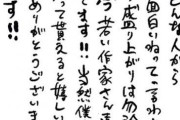 んな人から
面白いねって言わ
盛り上がりは勿論
若い作家さん
です!!当然僕
って貰えると嬉しい
ありがとうございま
す!!